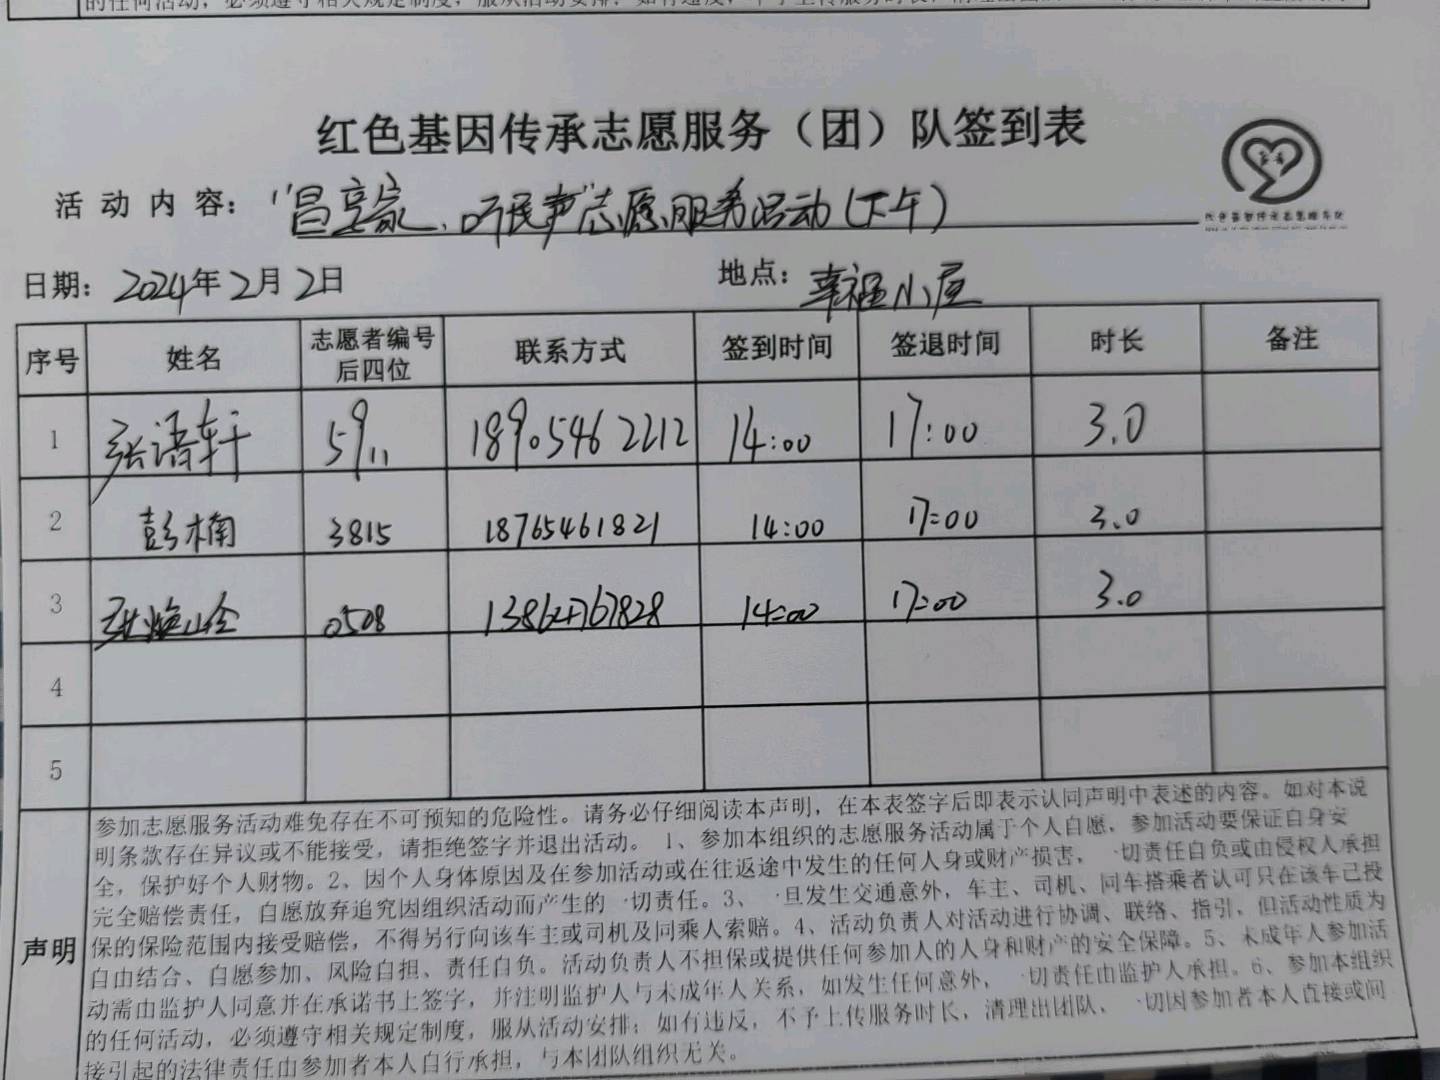 红色基因传承志愿服务（团）队签到表
活动内容：“昌享家、听民声”志愿服务活动（下午）
日期：2024年2月2日 地点：幸福小屋
序号 姓名 志愿者编号后四位 联系方式 签到时间 签退时间 时长 备注
1 张语轩 5911 18905462212 14:00 17:00 3.0
2 彭楠 3815 18765461821 14:00 17:00 3.0
3 0508 14:00 17:00 3.0
4
5
声明
参加志愿服务活动难免存在不可预知的危险性。请务必仔细阅读本声明，在本表签字后即表示认同声明中表述的内容。如对本说
明条款存在异议或不能接受，请拒绝签字并退出活动。 1、参加本组织的志愿服务活动属于个人自愿，参加活动要保证自身安
全，保护好个人财物。2、因个人身体原因及在参加活动或在往返途中发生的任何人身或财产损害，一切责任自负或由侵权人承担
完全赔偿责任，自愿放弃追究因组织活动而产生的一切责任。3、一旦发生交通意外，车主、司机、同车搭乘者认可只在该车已投
保的保险范围内接受赔偿，不得另行向该车主或司机及同乘人索赔。4、活动负责人对活动进行协调、联络、指引，但活动性质为
自由结合、自愿参加、风险自担、责任自负。活动负责人不担保或提供任何参加人的人身和财产的安全保障。5、未成年人参加活
动需由监护人同意并在承诺书上签字，并注明监护人与未成年人关系，如发生任何意外，一切责任由监护人承担。6、参加本组织
的任何活动，必须遵守相关规定制度，服从活动安排；如有违反，不予上传服务时长，清理出团队，一切因参加者本人直接或间
接引起的法律责任由参加者本人自行承担，与本团队组织无关。